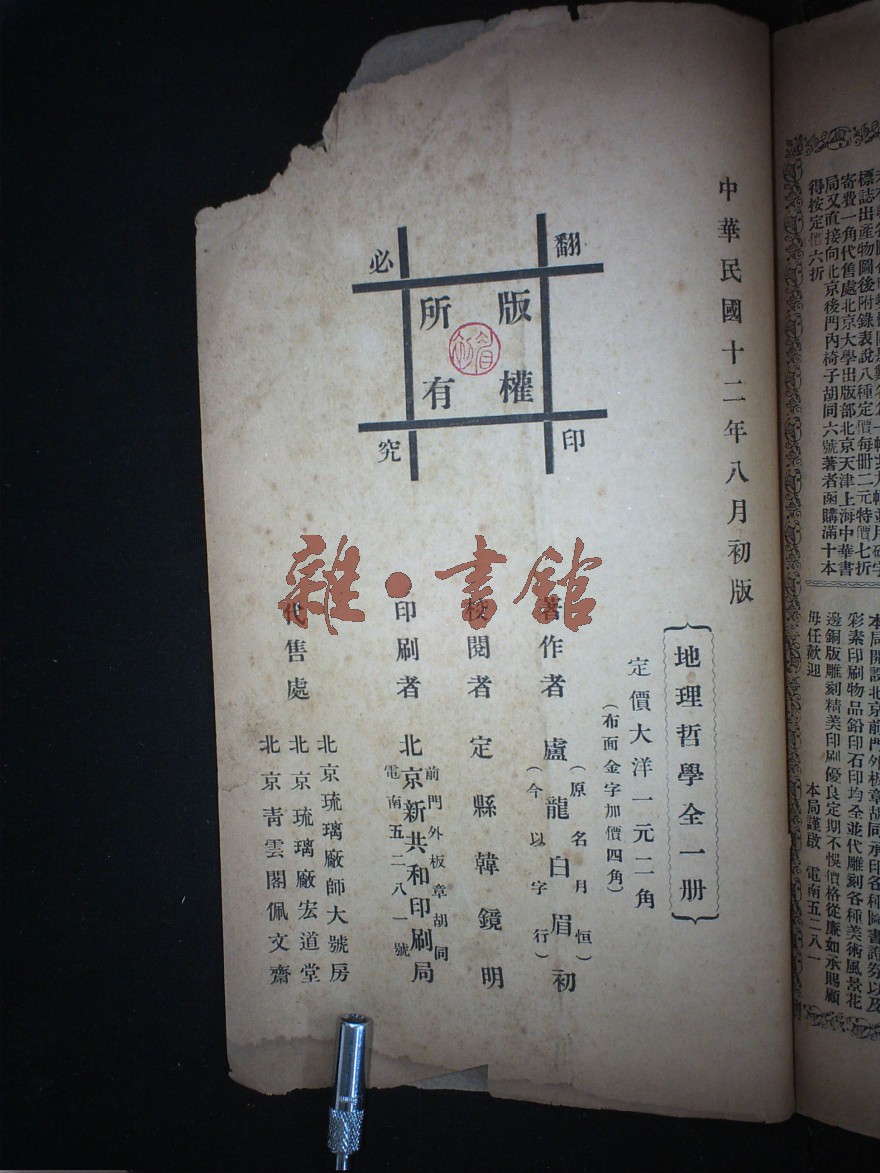 得按定價六折
局又直接向北京後門內椅子胡同六號著者函購滿十本
寄費一角代售處北京大學出版部北京天津上海中華書
標誌出產物圖後附錄表說八種定價每冊二元特價七折
本局開設北京前門外板章胡同承印各種圖書證券以及
彩素印刷物品鉛印石印均全並代雕刻各種美術風景花
邊銅版雕刻精美印刷優良定期不悞價格從廉如承賜顧
毋任歡迎
本局謹啟 電南五二八一
中華民國十二年八月初版
翻印必究
版權所有
眉初
地理哲學全一册
定價大洋一元二角
(布面金字加價四角)
著作者 盧龍白眉初
(原名月恒)
(今以字行)
校閱者 定縣韓鏡明
印刷者 北京新共和印刷局
前門外板章胡同
電南五二八一號
代售處
北京琉璃廠師大號房
北京琉璃廠宏道堂
北京青雲閣佩文齋
雜·書館